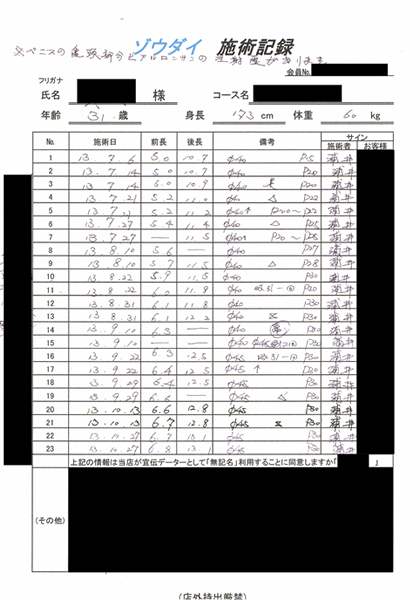 ※ペニスの亀頭部分とアロロンサンの注射痕があります
ゾウダイ 施術記録
会員No.
フリガナ
氏名 様 コース名
年齢 31 歳 身長 173 cm 体重 60 kg
No. 施術日 前長 後長 備考 サイン
施術者 お客様
1 13.7.6 5.0 10.7 φ40 P15 酒井
2 13.7.14 5.0 10.7 φ40 P20 酒井
3 13.7.14 5.0 10.9 φ40 P20 酒井
4 13.7.21 5.2 11.0 φ40 △ P22 酒井
5 13.7.21 5.2 11.2 φ40↑ P20~P22 酒井
6 13.7.27 5.4 11.4 φ40 △ P25 酒井
7 13.7.27 — 11.5 φ40↑ P20~P26 酒井
8 13.8.10 5.6 — φ40 P27 酒井
9 13.8.10 5.7 11.5 φ40 △ P28 酒井
10 13.8.22 5.9 11.5 φ40 P30 酒井
11 13.8.22 6.0 11.8 φ40 吸引一回 P20 酒井
12 13.8.31 6.1 11.8 φ40 P30 酒井
13 13.8.31 6.1 12.2 φ40 P30 酒井
14 13.9.10 6.3 — φ40 P30 酒井
15 13.9.10 — — φ40 P30 酒井
16 13.9.22 6.3 12.5 φ45 吸引一回 P30 酒井
17 13.9.22 6.4 12.5 φ45 ↑ P20 酒井
18 13.9.29 6.4 12.5 φ45 P30 酒井
19 13.9.29 6.6 — φ45 △ P30 酒井
20 13.10.13 6.6 12.8 φ45 P30 酒井
21 13.10.13 6.7 12.8 φ45 P30 酒井
22 13.10.27 6.7 13.1 φ45 P30 酒井
23 13.10.27 6.8 13.1 φ45 P30 酒井
上記の情報は当店が宣伝データーとして「無記名」利用することに同意しますか「 」
(その他)
(店外持出厳禁)